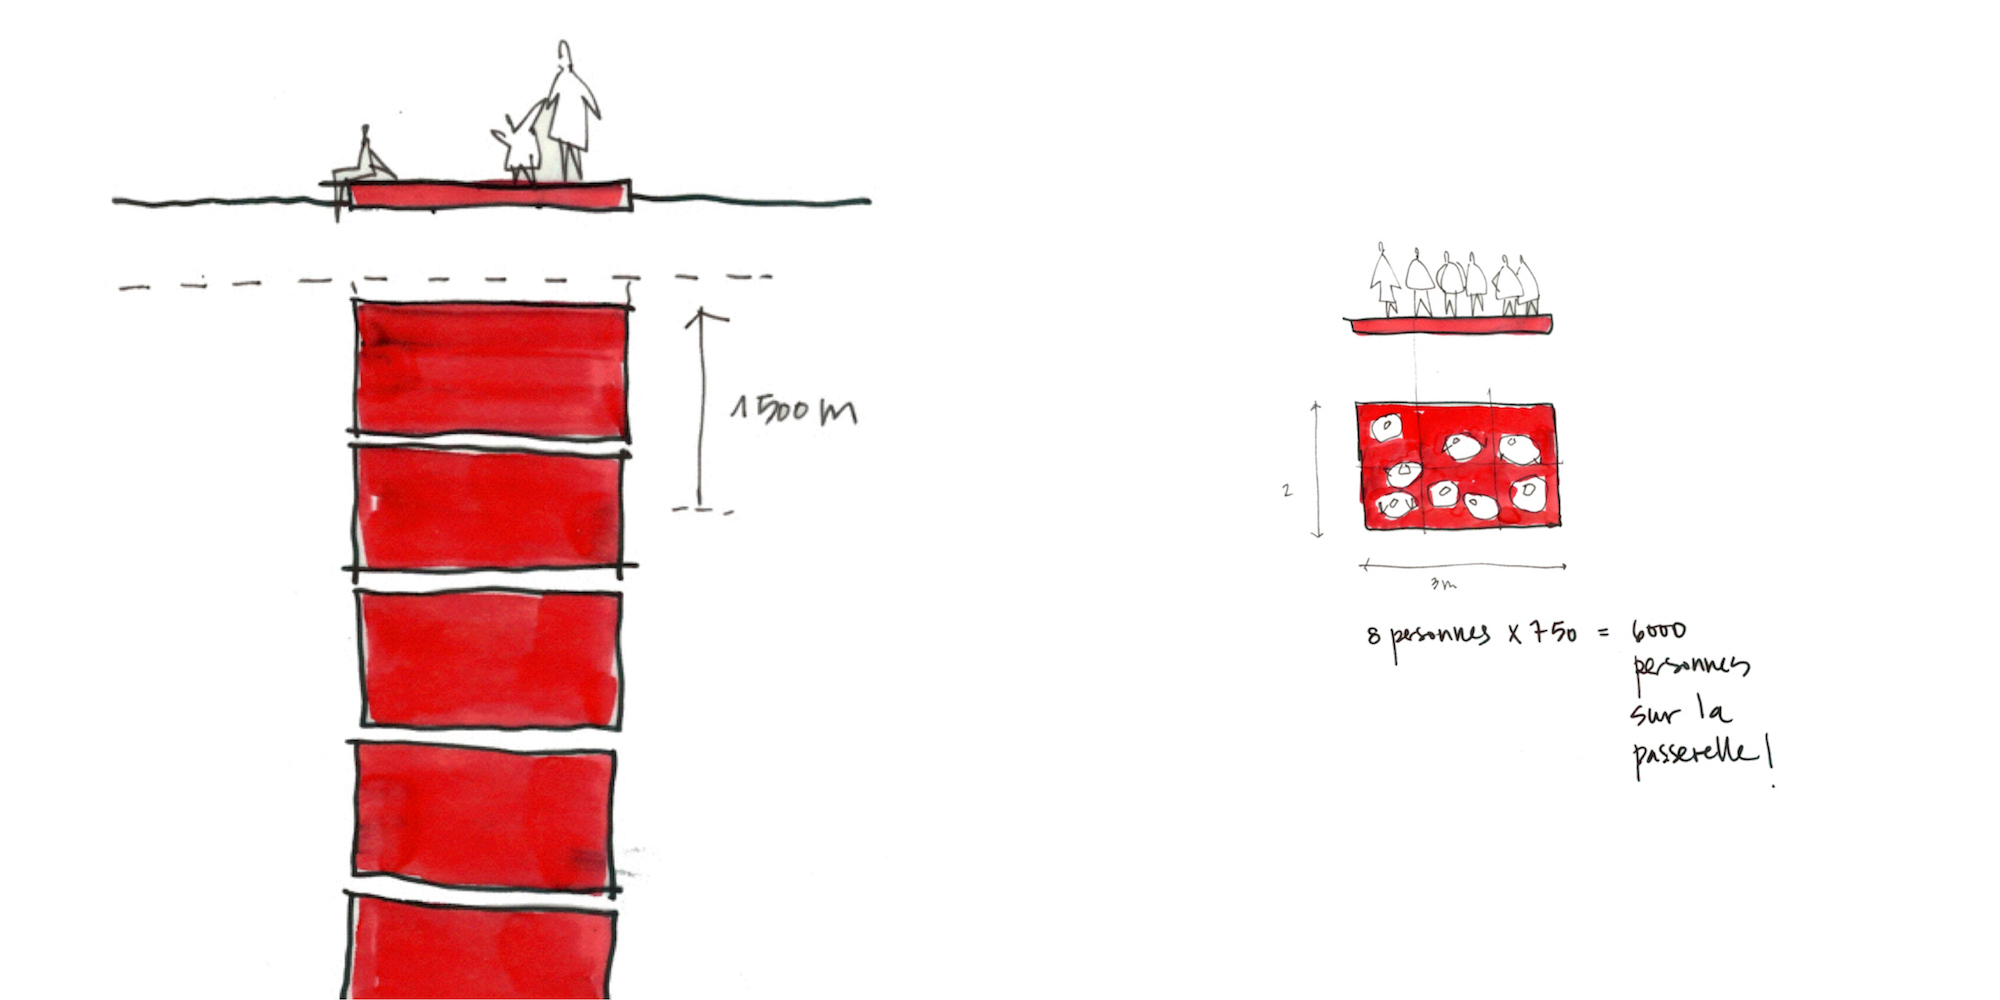 1500m
2
3m
8 personnes x 750 = 6000
personnes
sur la
passerelle!